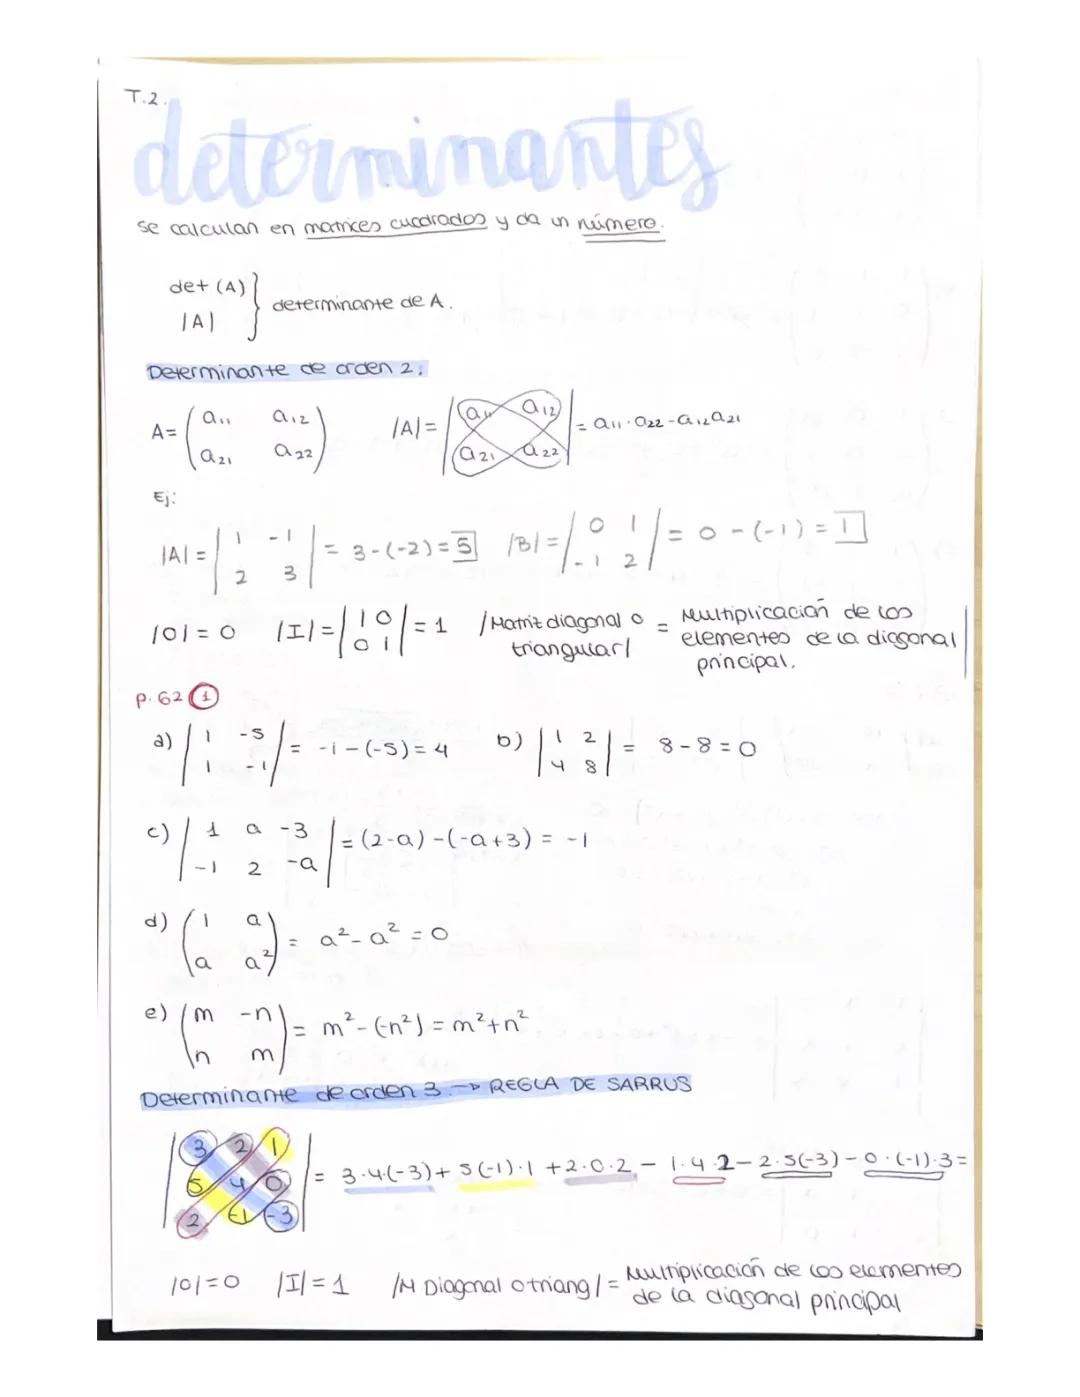 T.2.
determinantes
se calculan en matrices cuadradas y da un número.
det (A)
|A|
} determinante de A.
Determinante de orden 2:
A= ( a11 a12
a21 a22 )
|A|= | a11 a12
a21 a22 | = a11·a22-a12a21
Ej:
|A|= | 1 -1
2 3 | = 3-(-2)=5
|B|= | 0 1
-1 2 | = 0-(-1)=1
|0|=0 |I|= | 1 0
0 1 | =1
|Matriz diagonal o
triangular| =
Multiplicación de los
elementos de la diagonal
principal.
p.62 1
a) | 1 -5
1 -1 | = -1-(-5)=4
b) | 1 2
4 8 | = 8-8=0
c) | 1 a -3
-1 2 -a | =(2-a)-(-a+3)= -1
d) ( 1 a
a a² ) = a²-a²=0
e) ( m -n
n m ) = m²-(-n²)=m²+n²
Determinante de orden 3 → REGLA DE SARRUS
| 3 2 1
5 4 0
2 -1 -3 | = 3·4·(-3)+ 5(-1)·1 +2·0·2 - 1·4·2-2·5(-3)-0·(-1)·3=
|0|=0 |I|=1 |M Diagonal o triang|= Multiplicación de los elementos
de la diagonal principal